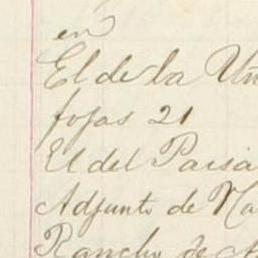 en
El de la Uñ
fojas 21
El del Paisa
Adjunto de Na
Rancho de